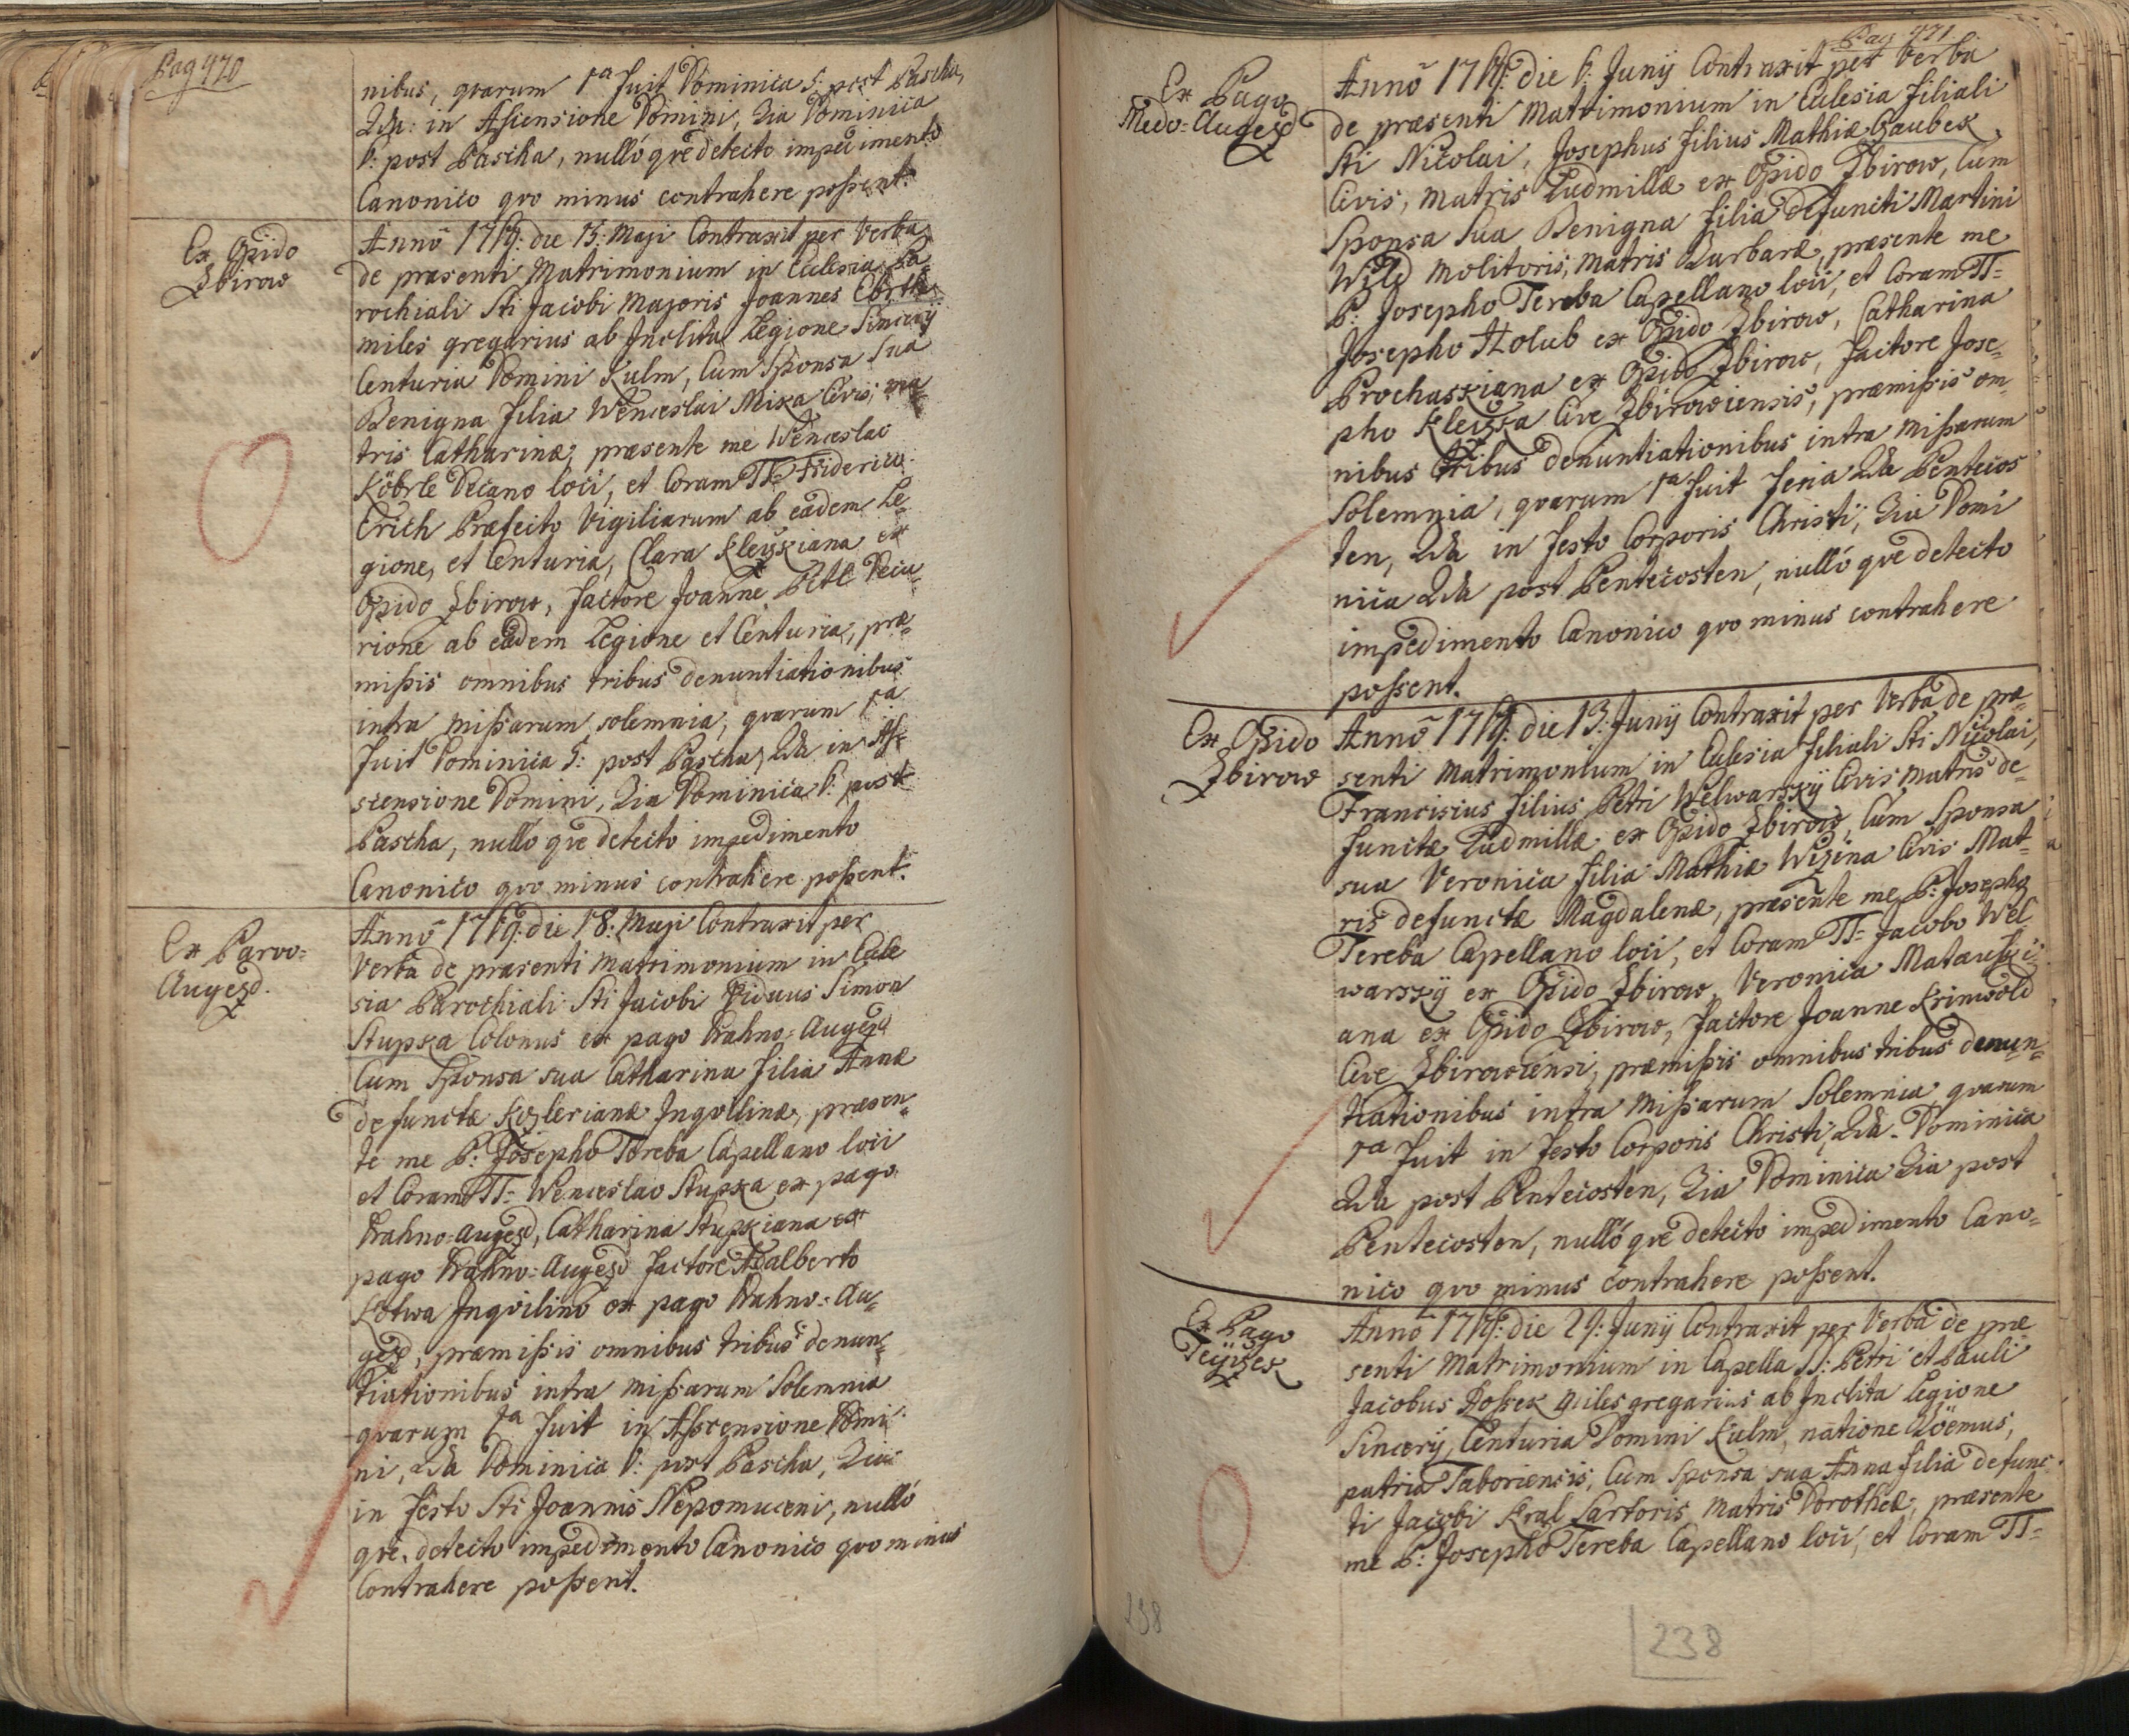 Pag 470
nibus, quarum 1a fuit Dominica 5: post Pascha,
2da: in Ascensione Domini, 3ia Dominica
6: post Pascha, nulló que detecto impedimento
Canonico quo minus contrahere possent.
Ex Opido
Zbirow
Anno 1769: die 15: Maji Contraxit per Verba
de praesenti Matrimonium in Eclesia Pa=
rochiali Sti Jacobi Majoris Joannes
miles gregarius ab Inclita Legione Sincery
Centuria Domini Kulm, Cum Sponsa Sua
Benigna filia Wenceslai Mika Civis, ma
tris Catharinae, praesente me Wenceslao
Köbrle Decano loci, et Coram TT= Friderico
Erich Praefecto Vigiliarum ab eadem Le=
gione, et Centuria, Clara Kleiskiana ex
Opido Zbirow, factore Joanne Decu=
rione ab eadem Legione et Centuria, prae=
missis omnibus tribus denuntiationibus
intra missarum solemnia, quarum 1a
fuit Dominica 5: post Pascha, 2da in As=
scensione Domini, 3ia Dominica 6: post
Pascha, nulló que detecto impedimento
Canonico quo minus contrahere possent.
Ex Parvo=
Augezd.
Anno 1769: die 18: Maji Contraxit per
Verba de praesenti Matrimonium in Ecle
sia Parochiali Sti Jacobi Viduus Simon
Stupka Colonus ex pago Drahno=Augezd
Cum Sponsa sua Catharina filia Annae
defunctae Kozlerianae Inqvilinae, praesen=
te me P: Josepho Tereba Capellano loci
et Coram TT= Wenceslao Stupka ex pago
Drahno=Augezd, Catharina Stupkiana ex
pago Drahno=Augezd factore Adalberto
Kotwa Inqvilino ex pago Drahno=Au=
gezd, praemissis omnibus tribus denun=
tiationibus intra Missarum Solemnia
quarum 1a fuit in Asscensione Domi
ni, 2da Dominica 6: post Pascha, 3ia
in festo Sti Joannis Nepomuceni, nulló
que detecto impedimento Canonico quo minus
Contrahere possent.
Pag 471
Ex Pago
Medo=Augezd
Anno 1769: die 6: Junij Contraxit per Verba
de praesenti Matrimonium in Eclesia filiali
Sti Nicolai, Josephus filius Mathiae Czaubek
Civis, Matris Ludmillae ex Opido Zbirow, Cum
Sponsa Sua Benigna filia defuncti Martini
Wild Molitoris, Matris Barbarae, praesente me
P: Josepho Tereba Capellano loci, et Coram TT=
Josepho Holub ex Opido Zbirow, Catharina
Prochaskiana ex Opido Zbirow, factore Jose=
pho Kleiska Cive Zbirowiensis, praemissis om
nibus tribus denuntiationibus intra Missarum
Solemnia, quarum 1a fuit Feria 2da Pentecos
ten, 2da in festo Corporis Christi, 3ia Domi
nica 2da post Pentecosten, nulló que detecto
impedimento Canonico quo minus contrahere
possent.
Ex Opido
Zbirow
Anno 1769: die 13: Junij Contraxit per Verba de prae=
senti Matrimonium in Eclesia filiali Sti Nicolai,
Franciscus filius Petri Welwarsky Civis Matris de=
functae Ludmillae ex Opido Zbirow, Cum Sponsa
sua Veronica filia Mathiae Wizina Civis Mat=
ris defunctae Magdalenae, praesente me P: Josepho
Tereba Capellano loci, et Coram TT= Jacobo Wel
warsky ex Opido Zbirow, Veronica Matauski=
ana ex Opido Zbirow, factore Joanne Krinwold
Cive Zbirowiensi, praemissis omnibus tribus denun=
tiationibus intra Missarum Solemnia, quarum
1a fuit in festo Corporis Christi, 2da Dominica
2da post Pentecosten, 3ia Dominica 3ia post
Pentecosten, nulló que detecto impedimento Cano=
nico quo minus contrahere possent.
Ex Pago
Teyczek
Anno 1769: die 29: Junij Contraxit per Verba de prae
senti Matrimonium in Capella SS: Petri et Pauli
Jacobus Possek Miles gregarius ab Inclita Legione
Sincery, Centuria Domini Kulm, natione Boëmus,
patria Taboriensis, Cum Sponsa sua Anna filia defunc
ti Jacobi Kral Sartoris, Matris Dorotheae, praesente
me P: Josepho Tereba Capellano loci, et Coram TT=
238
238